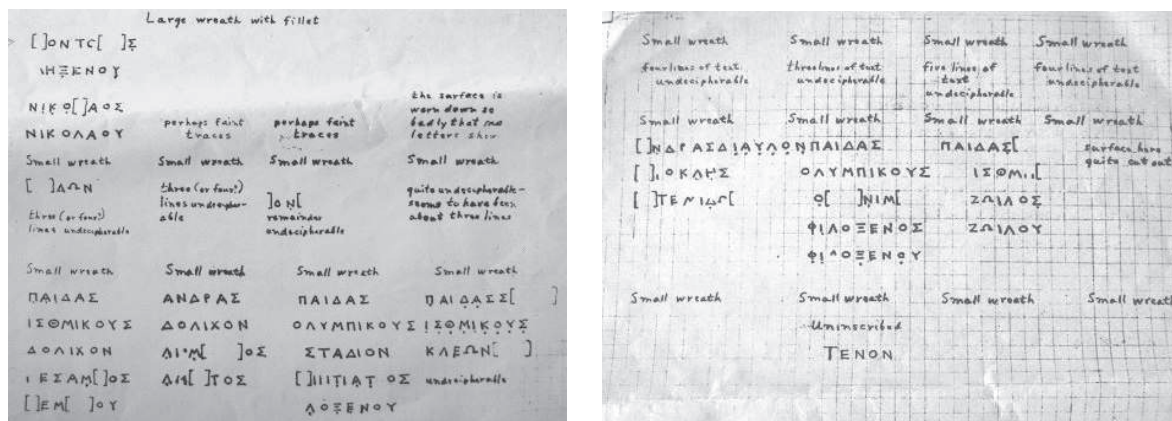 Large wreath with fillet
[ ]ΟΝΤС[ ]Σ
ΙΗΞΕΝΟΥ
ΝΙΚΟ̣[ ]ΑΟΣ
ΝΙΚΟΛΑΟΥ
perhaps faint
traces
perhaps faint
traces
the surface is
worn down so
badly that no
letters show
Small wreath
[ ]ΔΩΝ
three (or four?)
lines undecipherable
Small wreath
three (or four?)
lines undecipher-
able
Small wreath
]ΟΝ[
remainder
undecipherable
Small wreath
quite undecipherable-
seems to have been
about three lines
Small wreath
ΠΑΙΔΑΣ
ΙΣΘΜΙΚΟΥΣ
ΔΟΛΙΧΟΝ
ΙΕΣΑΜ[ ]ΟΣ
[ ]ΕΜ[ ]ΟΥ
Small wreath
ΑΝΔΡΑΣ
ΔΟΛΙΧΟΝ
[ ]ΟΣ
[ ]ΤΟΣ
Small wreath
ΠΑΙΔΑΣ
ΟΛΥΜΠΙΚΟΥΣ
ΣΤΑΔΙΟΝ
[ ]ΙΙΙΤΙΑΤ ΟΣ
ΛΟΞΕΝΟΥ
Small wreath
ΠΑΙΔΑΣΣ[ ]
ΙΣΘΜΙΚΟΥΣ
ΚΛΕΩΝ[ ]
undecipherable
Small wreath
four lines of text
undecipherable
Small wreath
three lines of text
undecipherable
Small wreath
five lines of
text
undecipherable
Small wreath
four lines of text
undecipherable
Small wreath
[ ]ΝΔΡΑΣΔΙΑΥΛΟΝ
[ ]ΙΟΚΛΗΣ
[ ]ΤΕΝΙΔΩ[
Small wreath
ΠΑΙΔΑΣ
ΟΛΥΜΠΙΚΟΥΣ
Ο[ ]ΝΙΜ[
ΦΙΛΟΞΕΝΟΣ
ΦΙΛΟΞΕΝΟΥ
Small wreath
ΠΑΙΔΑΣ[
ΙΣΘΜΙ..[
ΖΩΙΛΟΣ
ΖΩΙΛΟΥ
Small wreath
surface here
quite cut out
Small wreath
Small wreath
Uninscribed
TENON
Small wreath
Small wreath